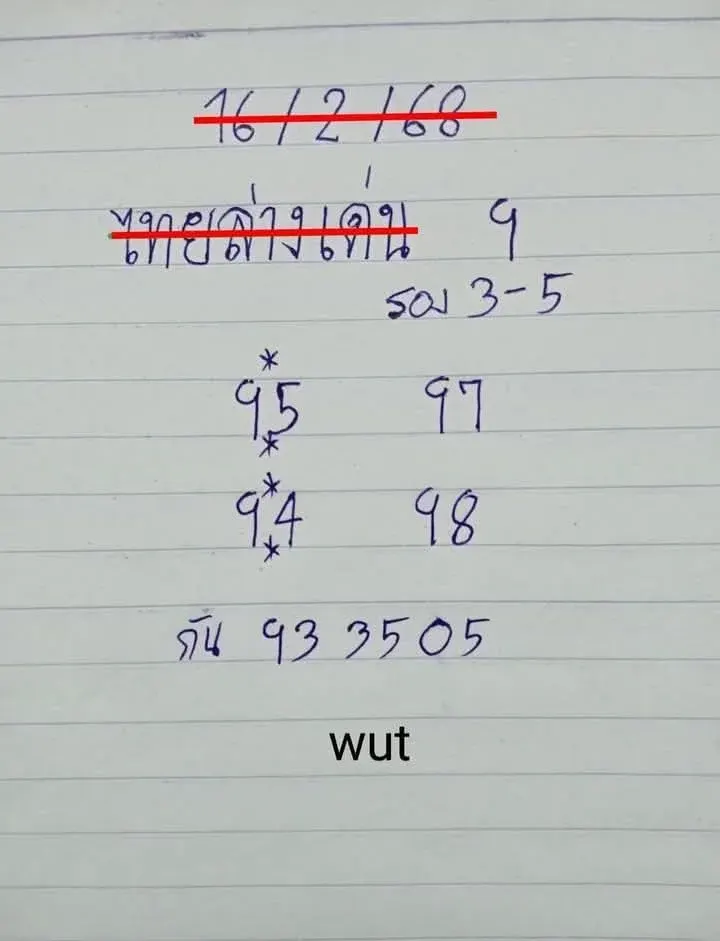 16/2/68
ไทยล่างเด่น 9
รอง 3-5
*
95 97
*
*
94 98
*
กัน 93 35 05
wut